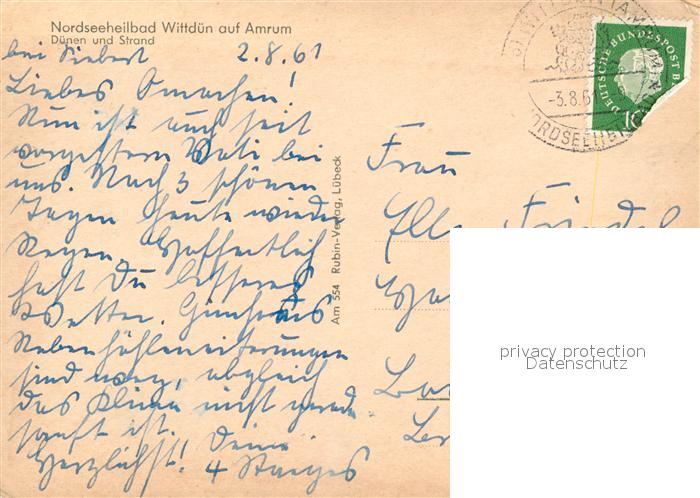 Nordseeheilbad Wittdün auf Amrum
Dünen und Strand
bei Siebert 2.8.61
Liebes Omachen!
Nun ist auch seit
vorgestern Vati bei
uns. Nach 3 schönen
Tagen heute wieder
Regen. Hoffentlich
hast Du besseres
Wetter. Günthers
Nebenhöhleneiterungen
sind weg, obgleich
das Klima nicht gerade
sanft ist.
Herzlichst! Deine
4 Staeges
Am 554 Rubin-Verlag, Lübeck
DEUTSCHE BUNDESPOST
10
-3.8.61
NORDSEEHEILBAD
Frau
Elle Friedel
privacy protection
Datenschutz